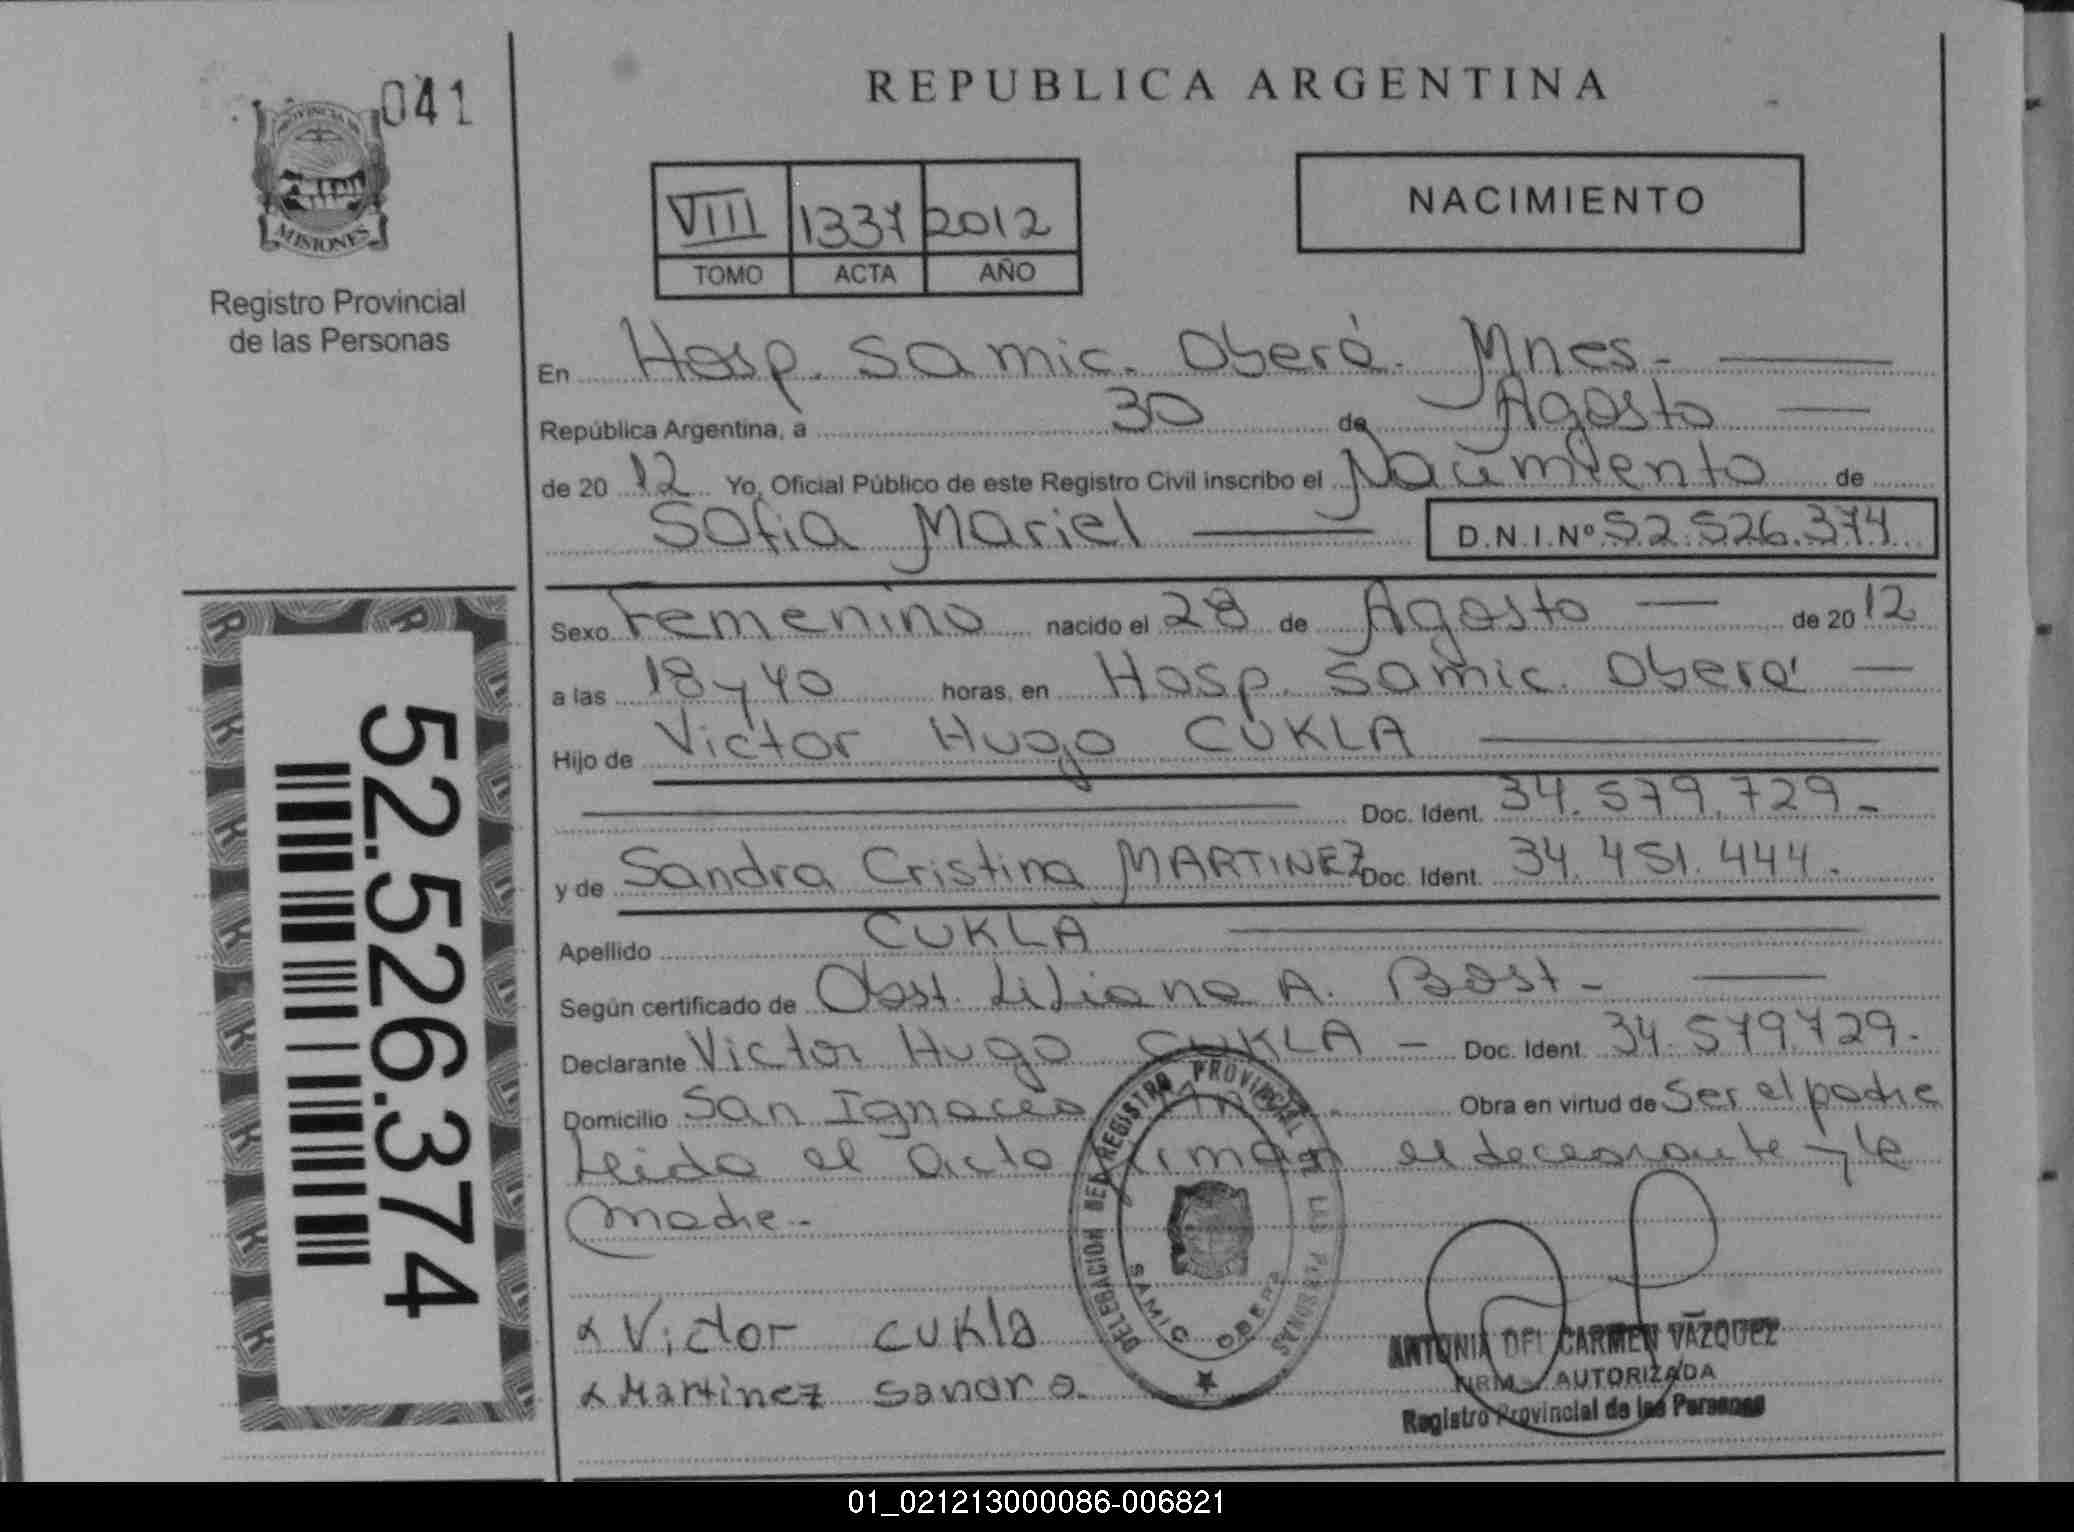 041
PROVINCIA DE
MISIONES
Registro Provincial
de las Personas
REPUBLICA ARGENTINA
VIII 1337 2012
TOMO ACTA AÑO
NACIMIENTO
En Hosp. Samic. Oberá. Mnes.
República Argentina, a 30 de Agosto
de 20 12 Yo, Oficial Público de este Registro Civil inscribo el Nacimiento de
Sofia Mariel D.N.I.Nº 52.526.374
Sexo Femenino nacido el 28 de Agosto de 20 12
a las 18 y 40 horas, en Hosp. Samic. Oberá
Hijo de Victor Hugo CUKLA
Doc. Ident. 34.579.729.-
y de Sandra Cristina MARTINEZ Doc. Ident. 34.451.444.
Apellido CUKLA
Según certificado de Obst. Liliana A. Bast.-
Declarante Victor Hugo CUKLA - Doc. Ident. 34.579.729.
Domicilio San Ignacio Obra en virtud de Ser el padre
Leida el acta firman el declarante y la
madre.-
x Victor CUKla
x Martinez Sandra.
DELEGACION DEL REGISTRO PROVINCIAL DE LAS PERSONAS
SAMIC OBERA
ANTONIA DEL CARMEN VAZQUEZ
FIRMA AUTORIZADA
Registro Provincial de las Personas
52.526.374
01_021213000086-006821